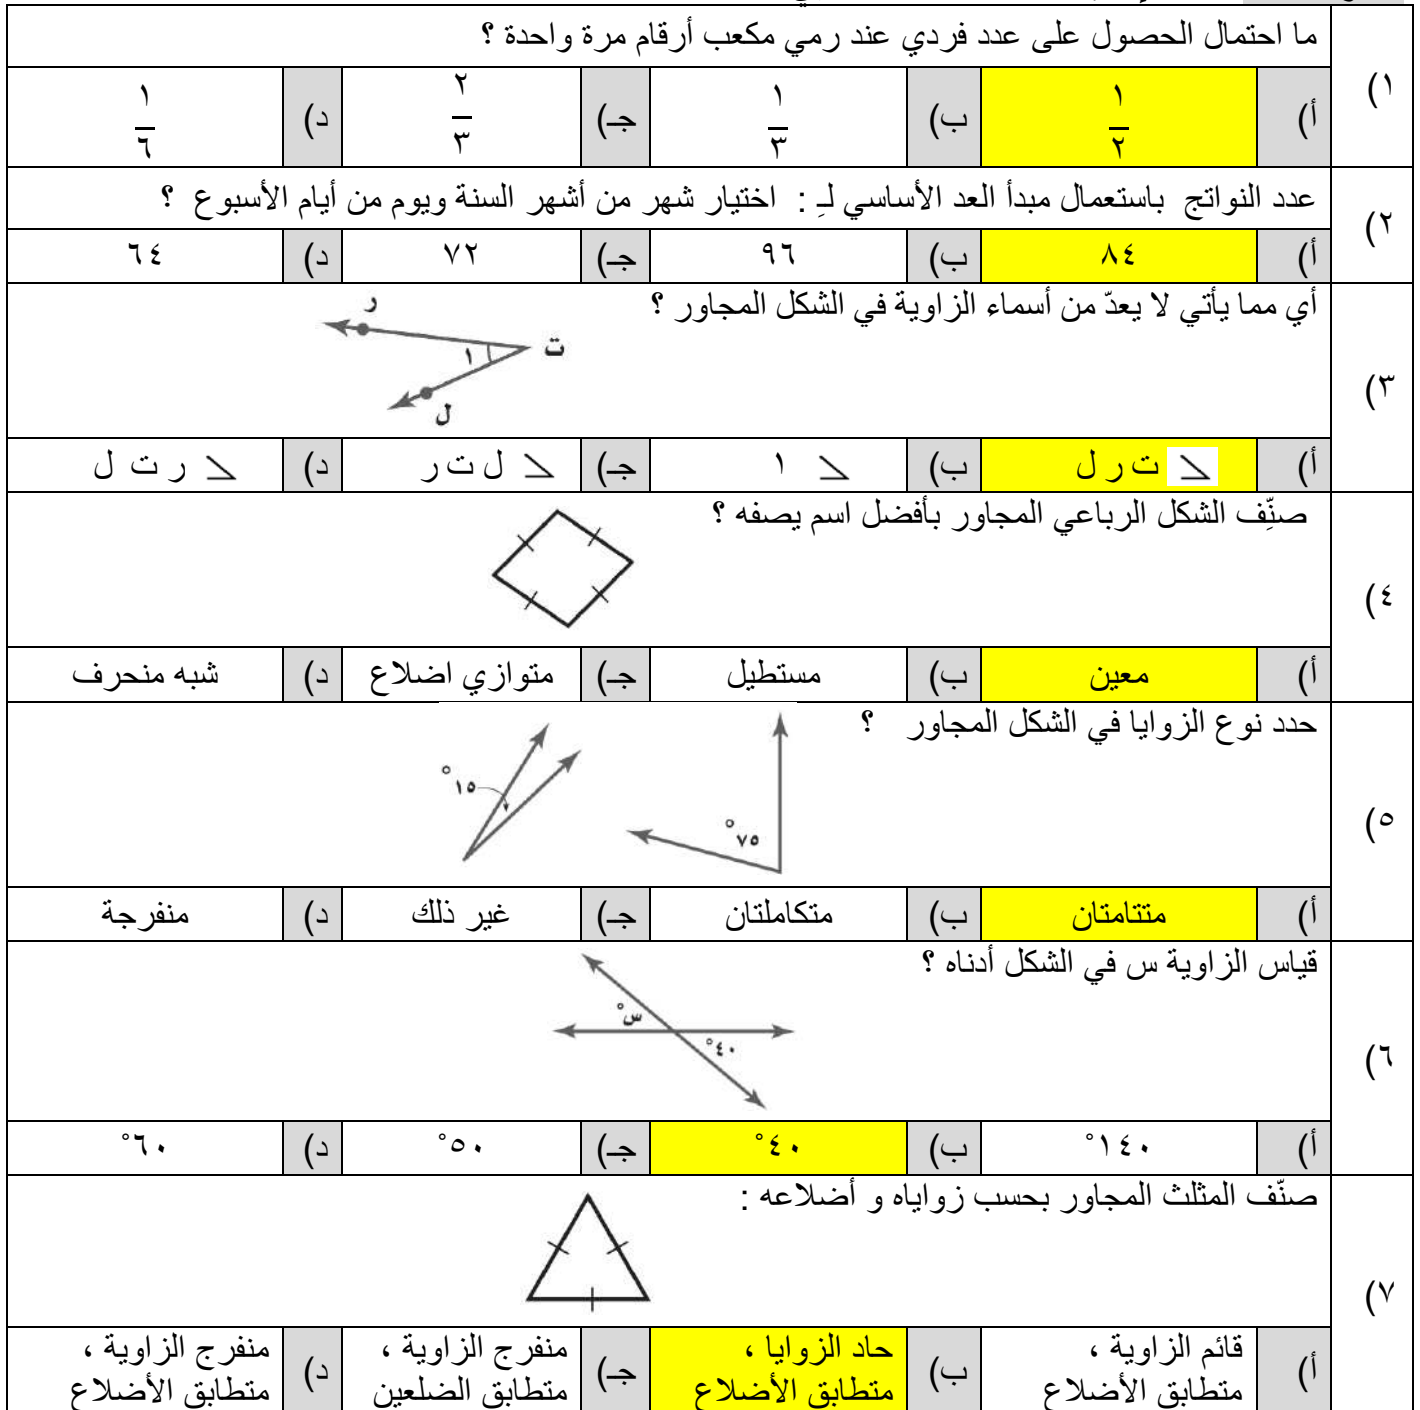 ١)
ما احتمال الحصول على عدد فردي عند رمي مكعب أرقام مرة واحدة ؟
أ) ١/٢ ب) ١/٣ جـ) ٢/٣ د) ١/٦
٢)
عدد النواتج باستعمال مبدأ العد الأساسي لـِ : اختيار شهر من أشهر السنة ويوم من أيام الأسبوع ؟
أ) ٨٤ ب) ٩٦ جـ) ٧٢ د) ٦٤
٣)
أي مما يأتي لا يعدّ من أسماء الزاوية في الشكل المجاور ؟
ر
ت
١
ل
أ) ∠ ت ر ل ب) ∠ ١ جـ) ∠ ل ت ر د) ∠ ر ت ل
٤)
صنِّف الشكل الرباعي المجاور بأفضل اسم يصفه ؟
أ) معين ب) مستطيل جـ) متوازي اضلاع د) شبه منحرف
٥)
حدد نوع الزوايا في الشكل المجاور ؟
٧٥° ١٥°
أ) متتامتان ب) متكاملتان جـ) غير ذلك د) منفرجة
٦)
قياس الزاوية س في الشكل أدناه ؟
س°
٤٠°
أ) ١٤٠° ب) ٤٠° جـ) ٥٠° د) ٦٠°
٧)
صنّف المثلث المجاور بحسب زواياه و أضلاعه :
أ) قائم الزاوية ، متطابق الأضلاع ب) حاد الزوايا ، متطابق الأضلاع جـ) منفرج الزاوية ، متطابق الضلعين د) منفرج الزاوية ، متطابق الأضلاع